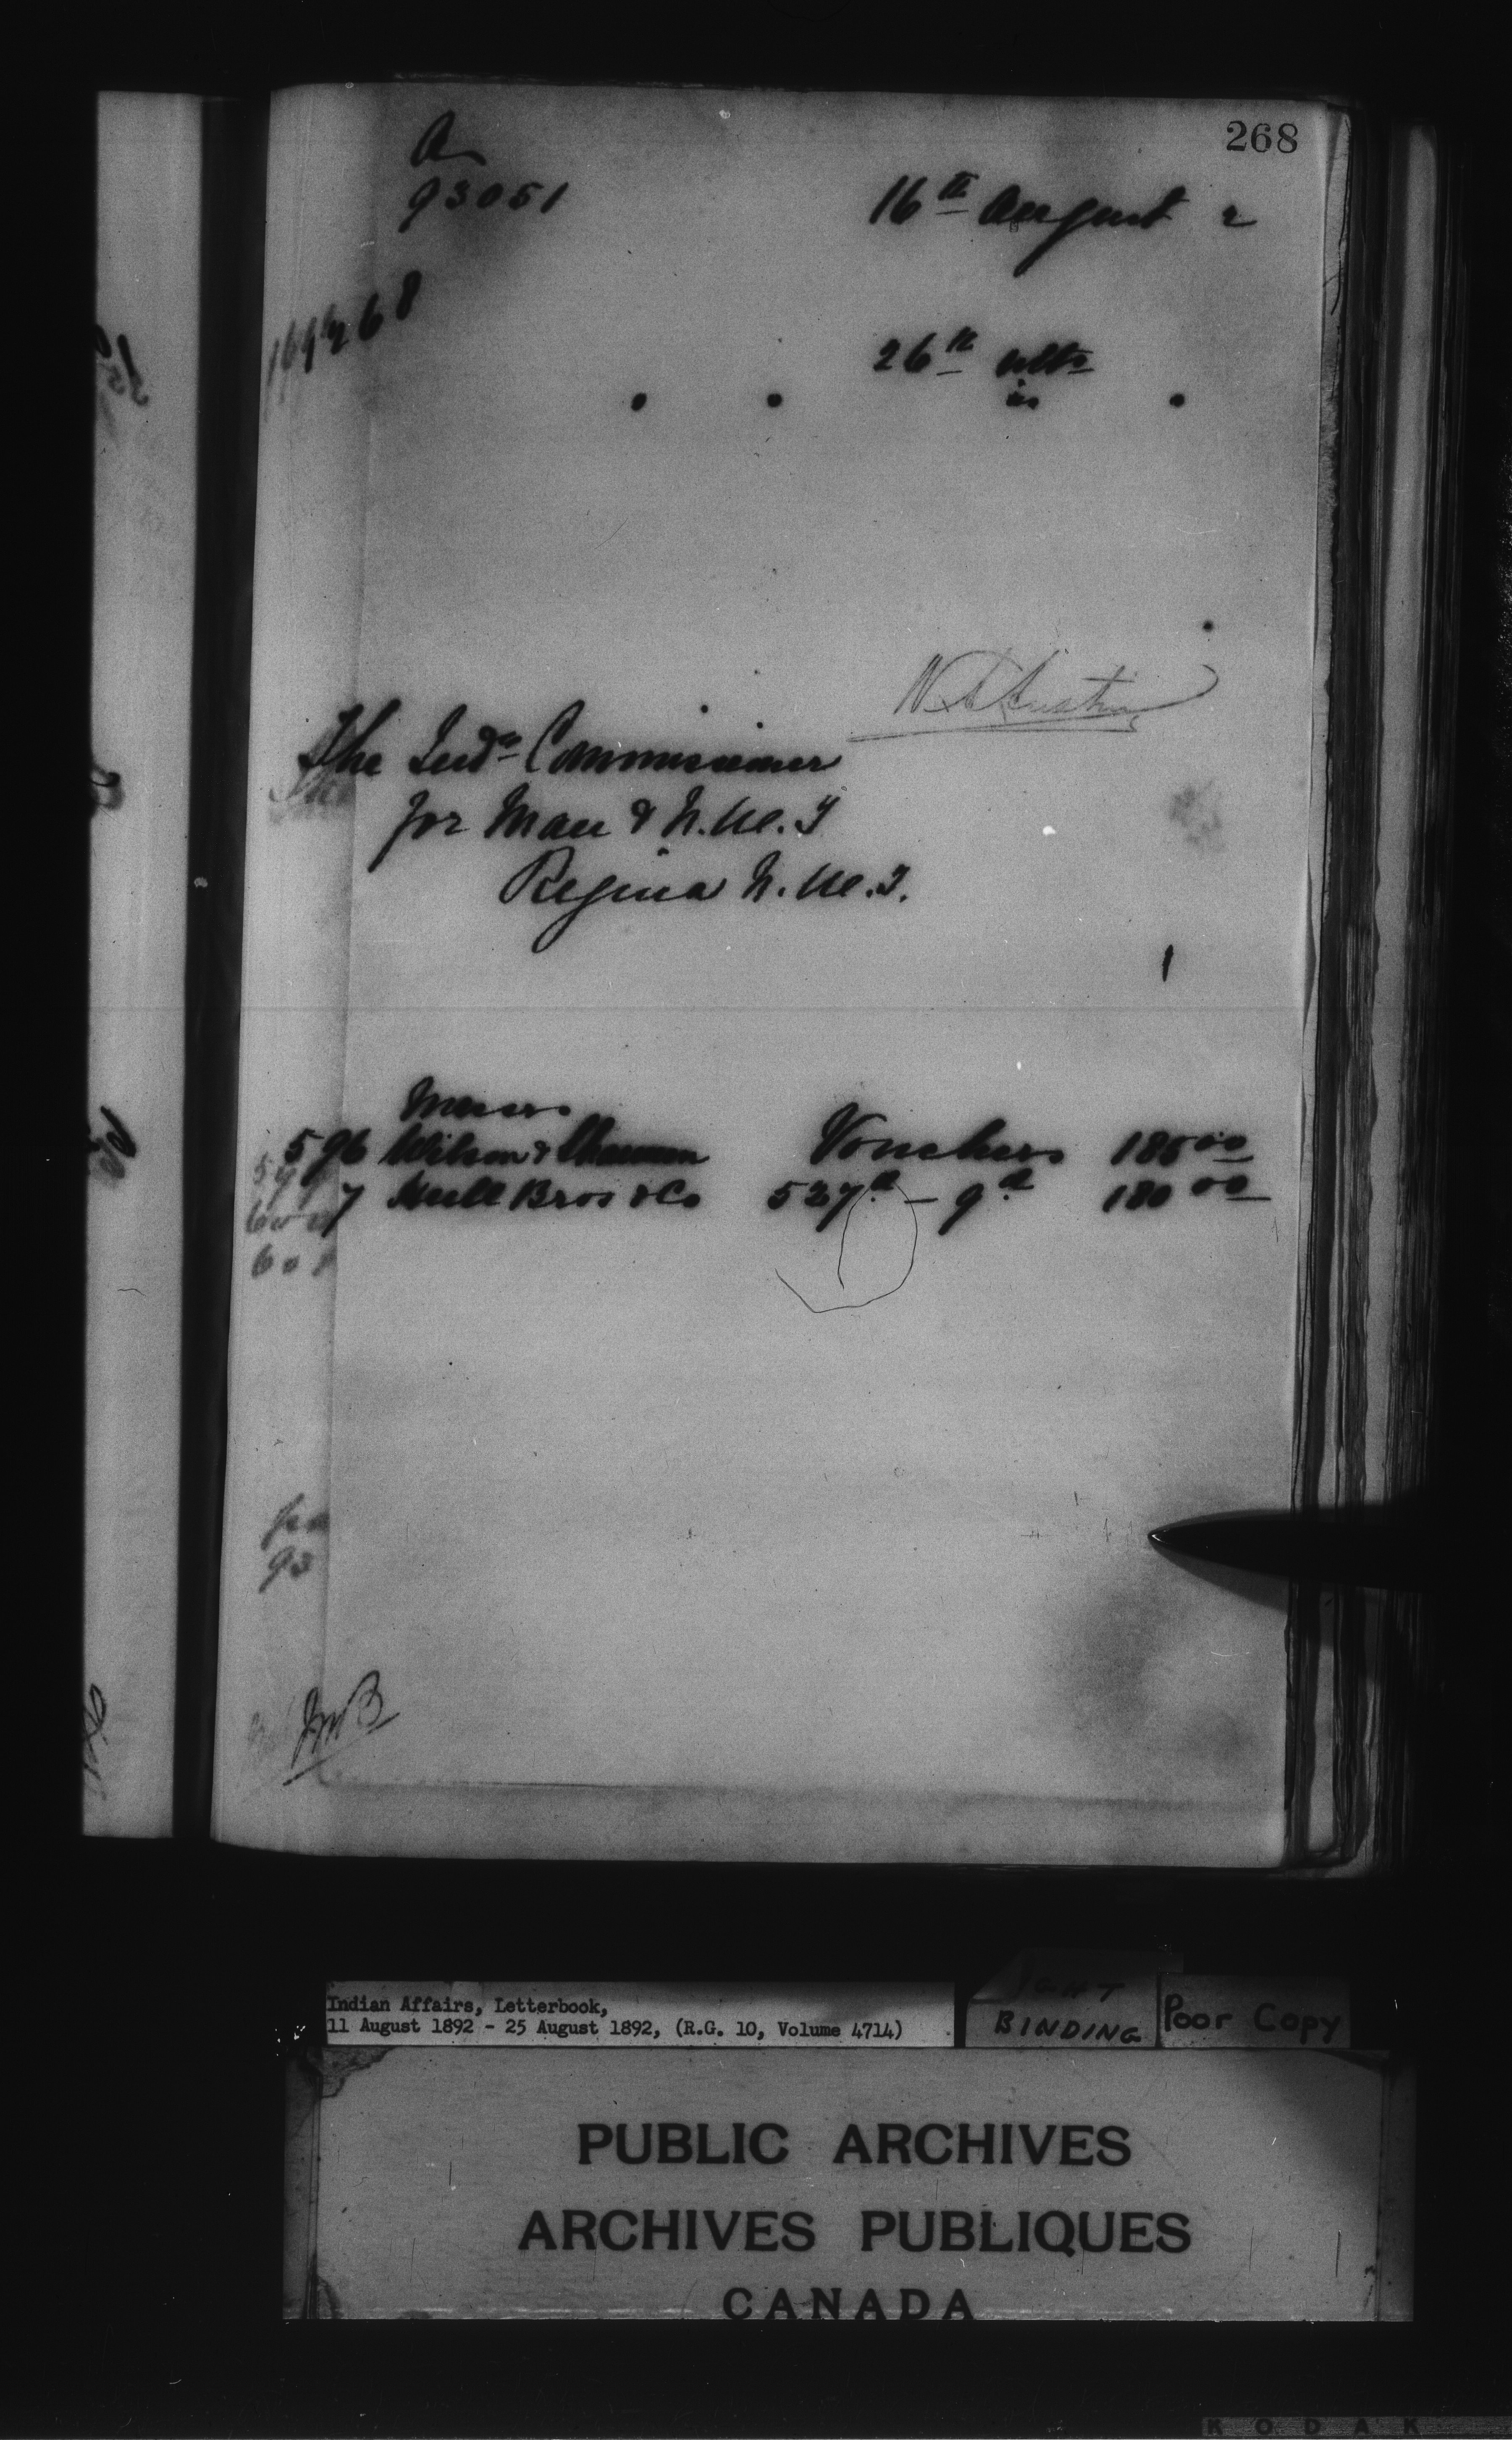 268
A
93051
16th August 2
26th ulto
is
The Indn Commissioner
for Man & N.W.T
Regina N.W.T.
Messrs
596 Wilson & Vouchers 185 00
7 Hull Bros & Co 527 - 9 180 00
JMB
Indian Affairs, Letterbook,
11 August 1892 - 25 August 1892, (R.G. 10, Volume 4714)
BINDING
Poor Copy
PUBLIC ARCHIVES
ARCHIVES PUBLIQUES
CANADA
KODAK